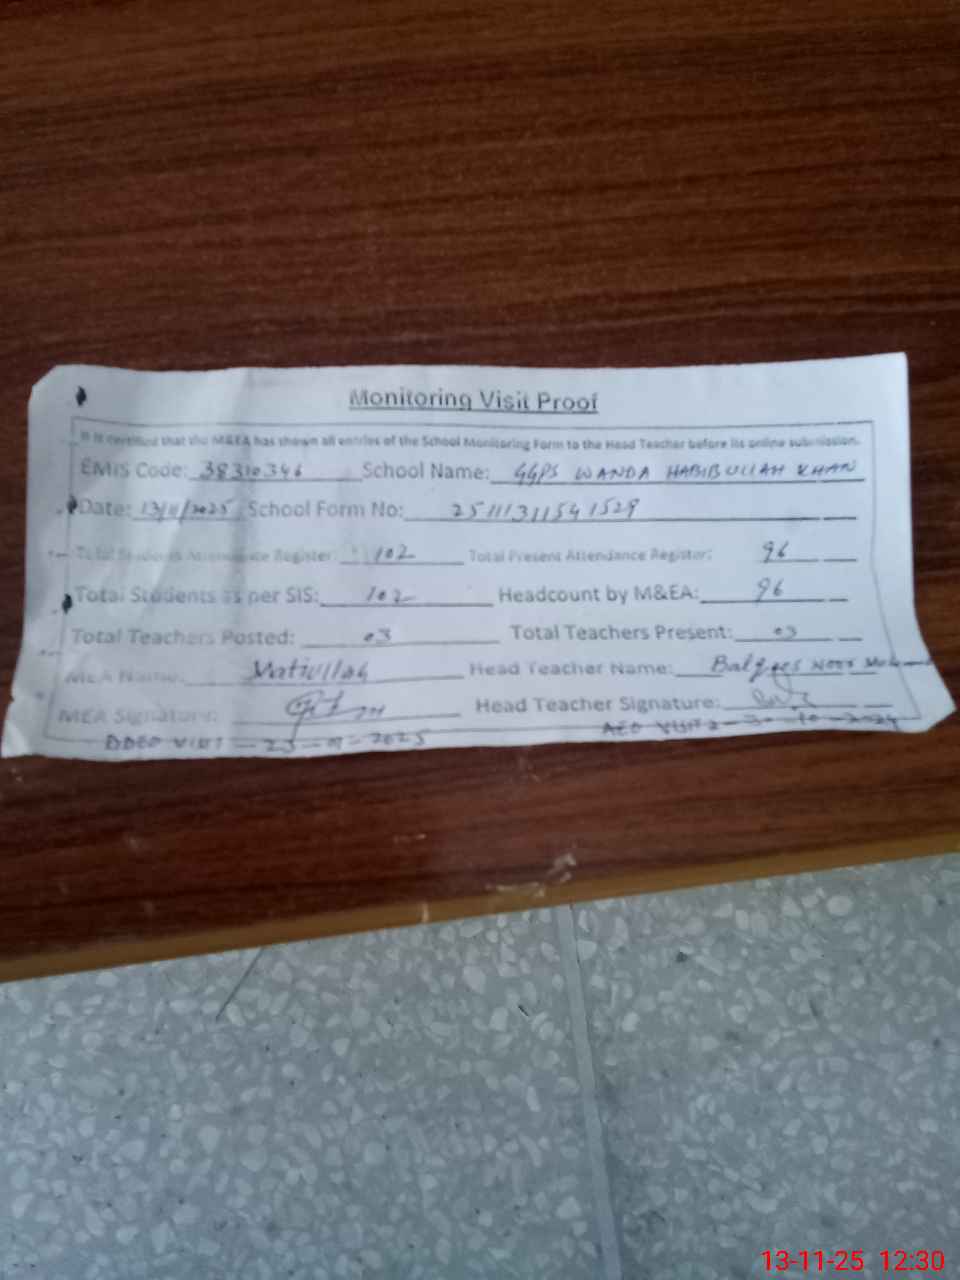 Monitoring Visit Proof
It is certified that the M&EA has shown all entries of the School Monitoring Form to the Head Teacher before its online submission.
EMIS Code: 38310346 School Name: GGPS WANDA HABIBULLAH KHAN
Date: 13/11/2025 School Form No: 25111311541529
Total Students Attendance Register: 102 Total Present Attendance Register: 96
Total Students as per SIS: 102 Headcount by M&EA: 96
Total Teachers Posted: 03 Total Teachers Present: 03
MEA Name: Matiullah Head Teacher Name: Balqees Noor
MEA Signature: Head Teacher Signature:
DDEO VISIT - 23 - 2025 AEO VISIT 10
13-11-25 12:30